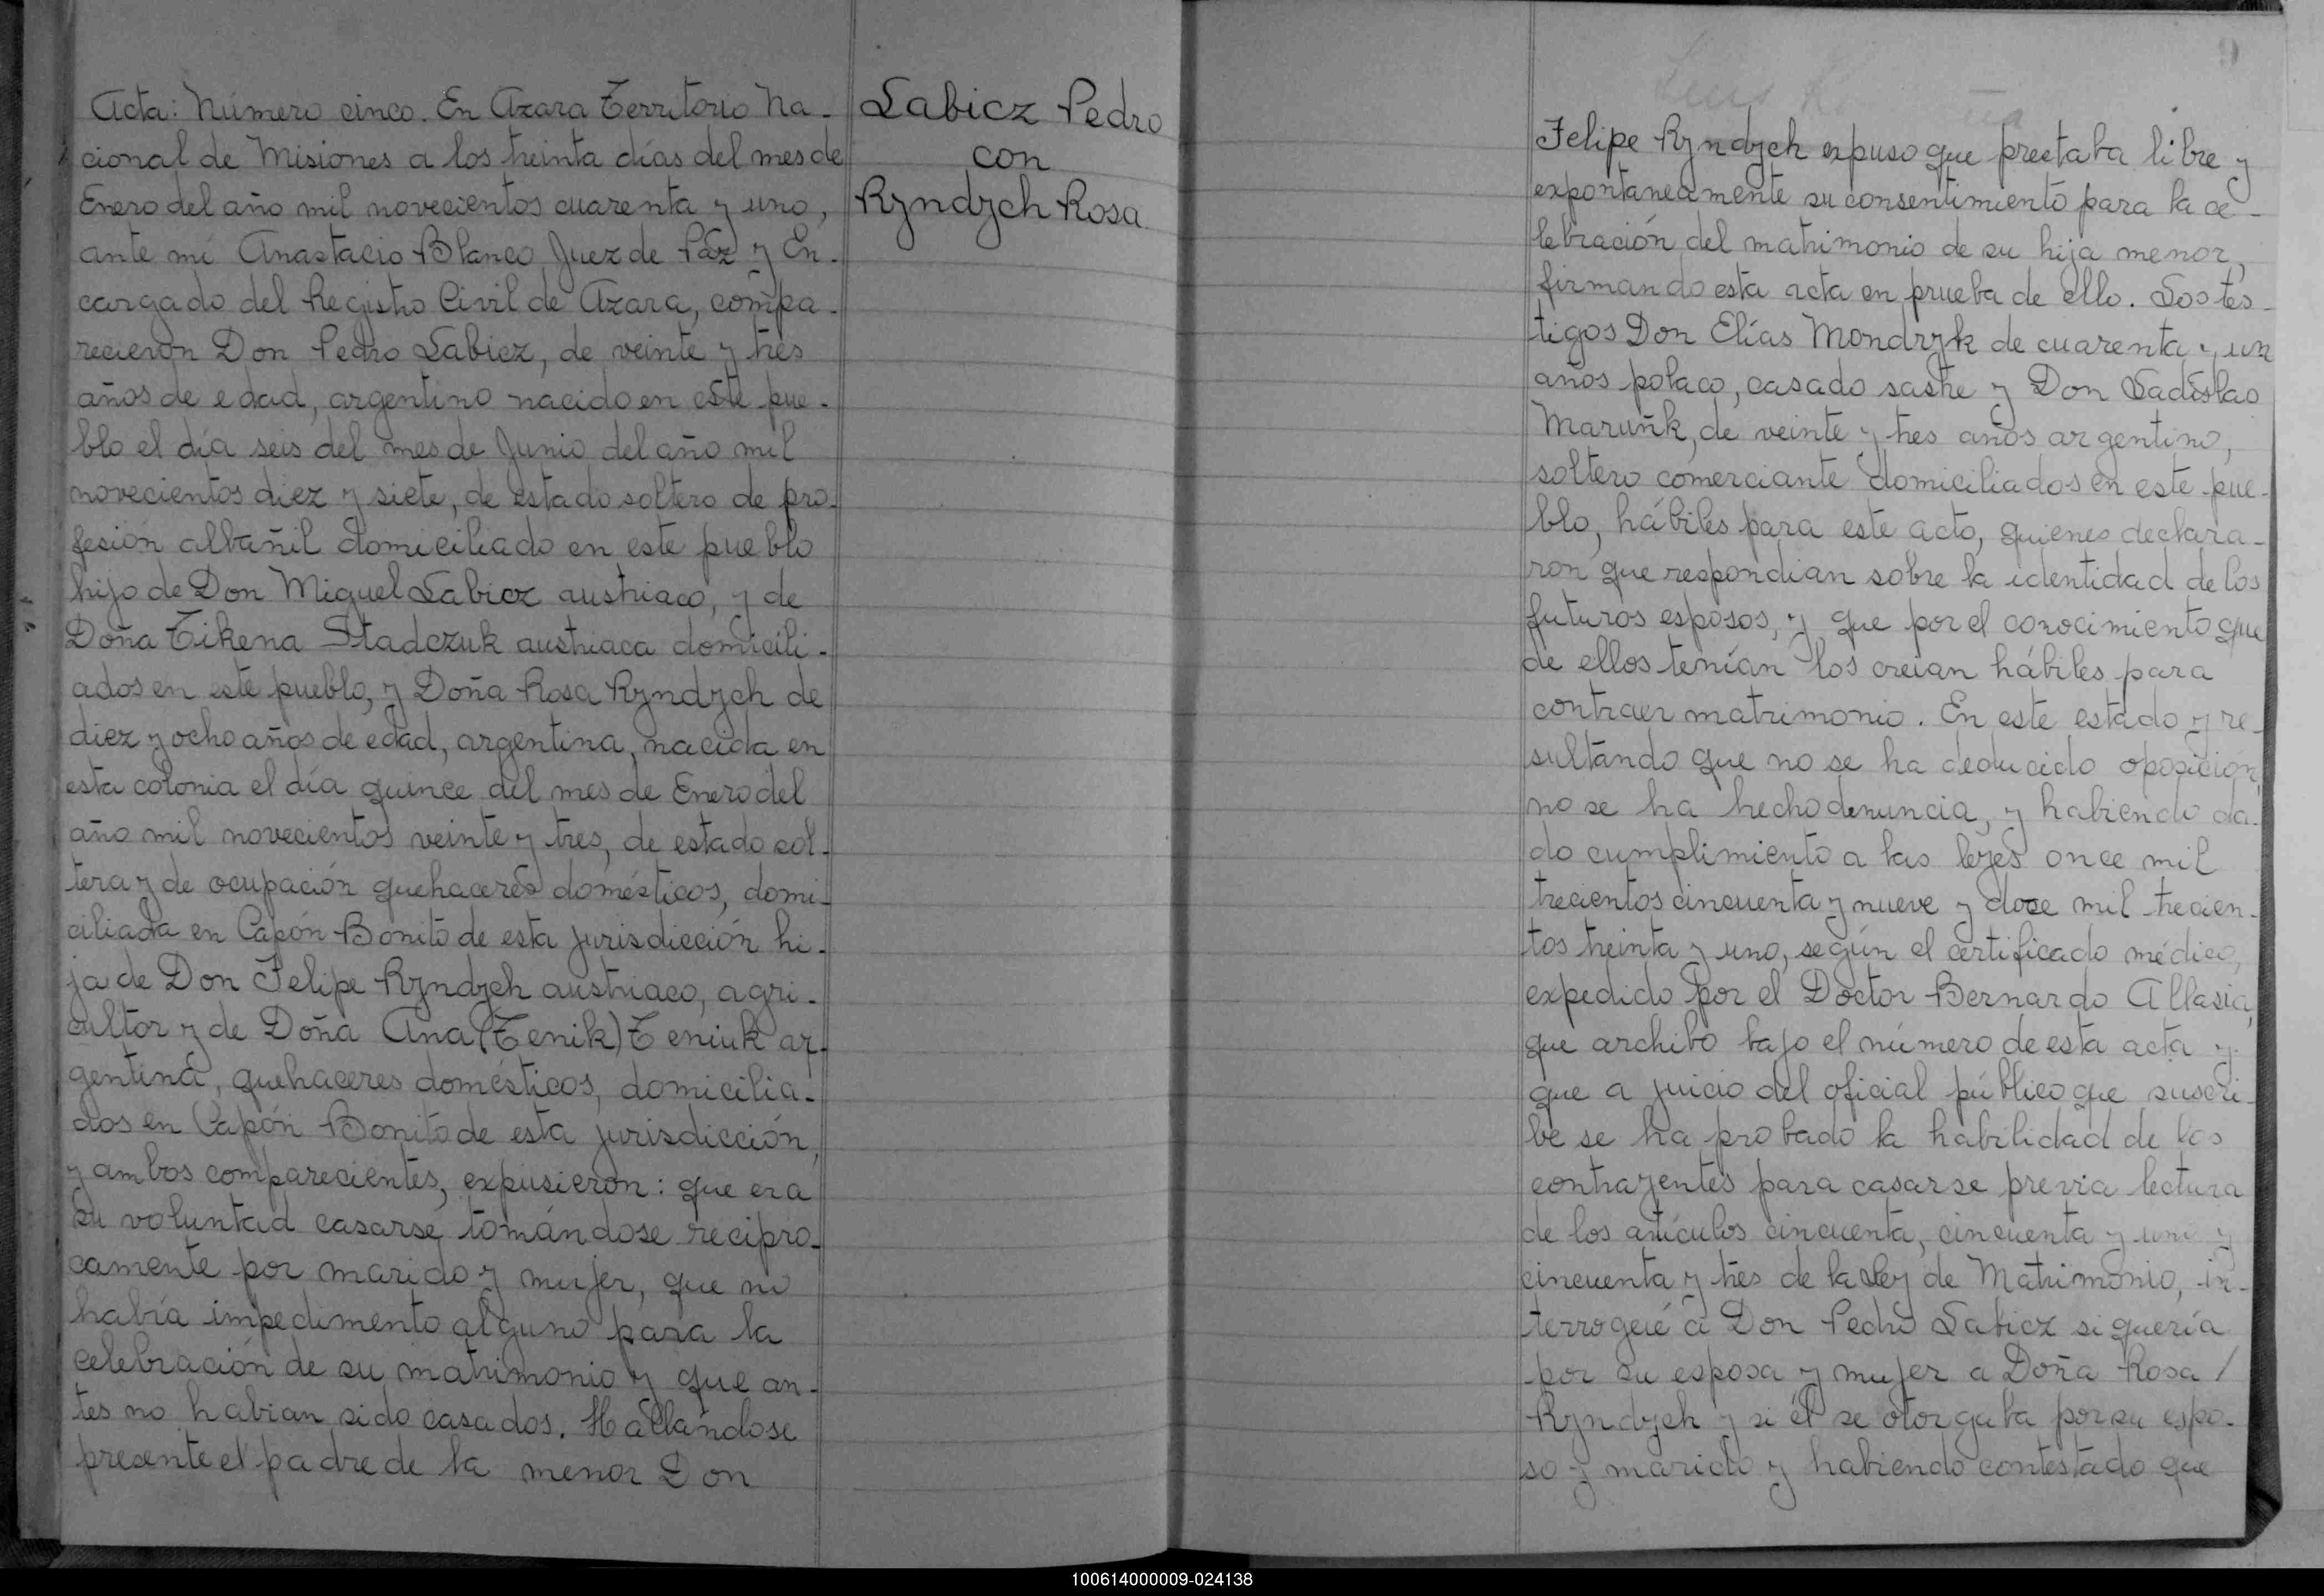 Acta: Número cinco. En Azara Territorio Na-
cional de Misiones a los treinta días del mes de
Enero del año mil novecientos cuarenta y uno,
ante mí Anastacio Blanco, Juez de Paz y En-
cargado del Registro Civil de Azara, compa-
recieron Don Pedro Labicz, de veinte y tres
años de edad, argentino nacido en este pue-
blo el día seis del mes de Junio del año mil
novecientos diez y siete, de estado soltero de pro-
fesión albañil domiciliado en este pueblo
hijo de Don Miguel Labicz austriaco, y de
Doña Tikena Stadczuk austriaca domicili-
ados en este pueblo, y Doña Rosa Ryndych de
diez y ocho años de edad, argentina, nacida en
esta colonia el día quince del mes de Enero del
año mil novecientos veinte y tres, de estado sol-
tera y de ocupación quehaceres domésticos, domi-
ciliada en Capón Bonito de esta jurisdicción hi-
ja de Don Felipe Ryndych austriaco, agri-
cultor y de Doña Ana (Tenik) Teniuk ar-
gentina, quehaceres domésticos, domicilia-
dos en Capón Bonito de esta jurisdicción,
y ambos comparecientes, expusieron: que era
su voluntad casarse, tomándose recipro-
camente por marido y mujer, que no
había impedimento alguno para la
celebración de su matrimonio y que an-
tes no habian sido casados. Hallándose
presente el padre de la menor Don
Labicz Pedro
con
Ryndych Rosa
9
Felipe Ryndych expuso que prestaba libre y
expontaneamente su consentimiento para la ce-
lebración del matrimonio de su hija menor,
firmando esta acta en prueba de ello. Los tes-
tigos Don Elías Mondryk de cuarenta y un
años polaco, casado sastre y Don Ladislao
Maruñk, de veinte y tres años argentino,
soltero comerciante domiciliados en este pue-
blo, hábiles para este acto, quienes declara-
ron que respondian sobre la identidad de los
futuros esposos, y que por el conocimiento que
de ellos tenían los creian hábiles para
contraer matrimonio. En este estado y re-
sultando que no se ha deducido oposición,
no se ha hecho denuncia, y habiendo da-
do cumplimiento a las leyes once mil
trecientos cincuenta y nueve y doce mil trecien-
tos treinta y uno, según el certificado médico,
expedido por el Doctor Bernardo Allasia,
que archibo bajo el número de esta acta y
que a juicio del oficial público que suscri-
be se ha probado la habilidad de los
contrayentes para casarse previa lectura
de los artículos cincuenta, cincuenta y uno y
cincuenta y tres de la Ley de Matrimonio, in-
terrogué a Don Pedro Labicz si quería
por su esposa y mujer a Doña Rosa /
Ryndych y si él se otorgaba por su espo-
so y marido y habiendo contestado que
100614000009-024138